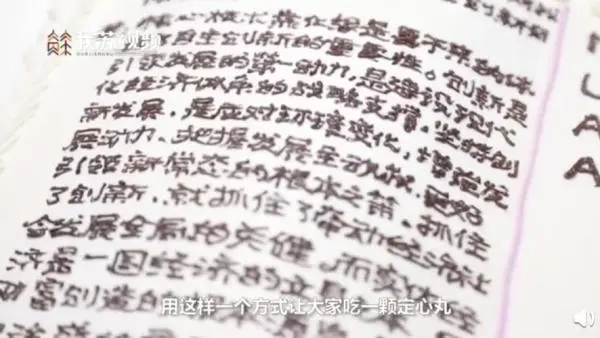 我苏视频
自主创新的重要性。创新是
引领发展的第一动力，是建设现代
化经济体系的战略支撑。坚持创
新发展，是应对环境变化，增强发
展动力、把握发展主动权，更好
引领新常态的根本之策。抓住
了创新，就抓住了牵动经济社
会发展全局的关键。而实体经
济是一国经济的立身
财富创造的
U
A
A
用这样一个方式让大家吃一颗定心丸